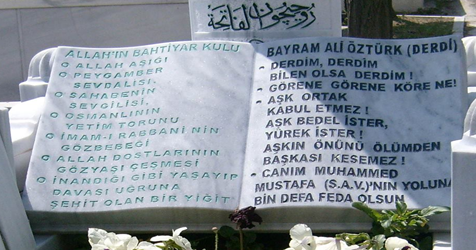 روحيچون الفاتحة
ALLAH'IN BAHTİYAR KULU
○ ALLAH AŞIĞI
○ PEYGAMBER
SEVDALISI,
○ SAHABENİN
SEVGİLİSİ,
○ OSMANLININ
YETİM TORUNU
○ İMAM-I RABBANİ NİN
GÖZBEBEĞİ
○ ALLAH DOSTLARININ
GÖZYAŞI ÇEŞMESİ
○ İNANDIĞI GİBİ YAŞAYIP
DAVASI UĞRUNA
ŞEHİT OLAN BİR YİĞİT
○ BAYRAM ALİ ÖZTÜRK (DERDİ)
- DERDİM, DERDİM
BİLEN OLSA DERDİM !
- GÖRENE GÖRENE KÖRE NE!
- AŞK ORTAK
KABUL ETMEZ !
AŞK BEDEL İSTER,
YÜREK İSTER !
AŞKIN ÖNÜNÜ ÖLÜMDEN
BAŞKASI KESEMEZ !
- CANIM MUHAMMED
MUSTAFA (S.A.V.)'NIN YOLUNA
BİN DEFA FEDA OLSUN